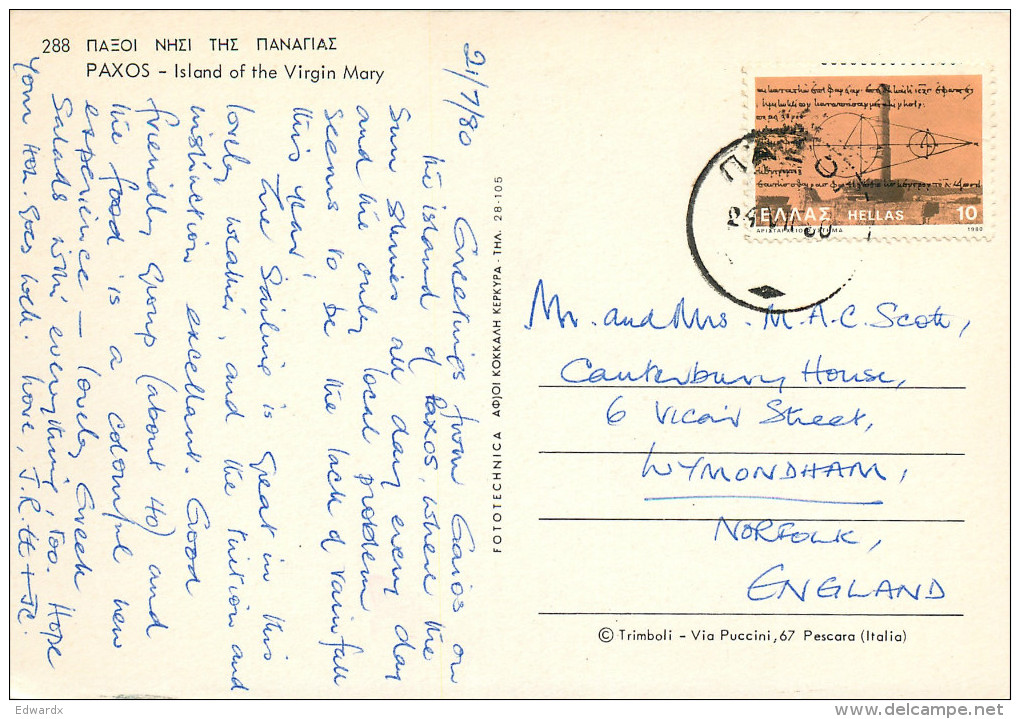 288 ΠΑΞΟΙ ΝΗΣΙ ΤΗΣ ΠΑΝΑΓΙΑΣ
PAXOS - Island of the Virgin Mary
21/7/80
Greetings from Gaios on
the island of Paxos, where the
sun shines all day every day
and the only local problem
seems to be the lack of rainfall
this year!
The sailing is great in this
lovely weather, and the tuition and
instruction excellent. Good
friendly group (about 40) and
the food is a colourful new
experience — lovely Greek
salads with everything, too. Hope
your goes well. Love, J.R.
FOTOTECHNICA ΑΦ|ΟΙ ΚΟΚΚΑΛΗ ΚΕΡΚΥΡΑ - ΤΗΛ. 28-105
ΕΛΛΑΣ HELLAS 10
ΑΡΙΣΤΑΡΧΕΙΟ ΣΥΣΤΗΜΑ 1980
Mr. and Mrs. M.A.C. Scott,
Canterbury House,
6 Vicar Street,
WYMONDHAM,
NORFOLK,
ENGLAND
© Trimboli - Via Puccini, 67 Pescara (Italia)
Edwardx
delcampe.net